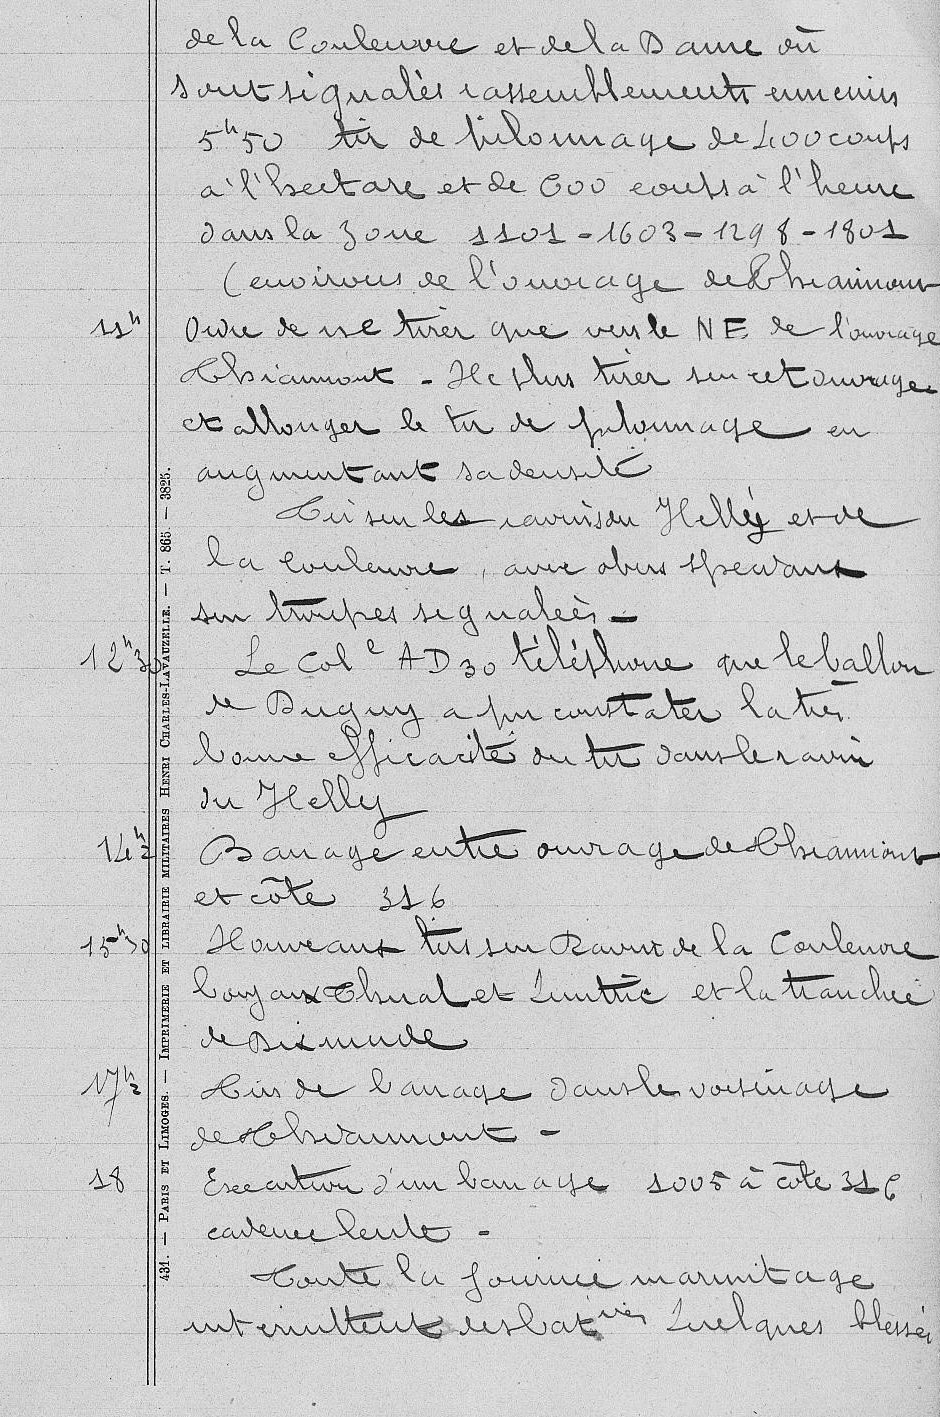 de la Couleuvre et de la Dame où
sont signalés rassemblements ennemis
5h50 tir de pilonnage de 400 coups
à l'hectare et de 600 coups à l'heure
dans la zone 1101 - 1603 - 1298 - 1801
(environs de l'ouvrage de Thiaumont
11h Ordre de ne tirer que vers le NE de l'ouvrage
Thiaumont - Ne plus tirer sur cet ouvrage
et allonger le tir de pilonnage en
augmentant sa densité
Tir sur les ravins du Helly et de
la Couleuvre, avec obus
sur troupes signalées -
12h30 Le Col AD 30 téléphone que le ballon
de Dugny a pu constater la très
bonne efficacité du tir dans le ravin
du Helly
14h½ Barrage entre ouvrage de Thiaumont
et côte 316
15h30 Nouveaux tirs sur Ravin de la Couleuvre
boyaux et et la tranchée
de Dixmude
17h½ Tirs de barrage dans le voisinage
de Thiaumont -
18 Exécution d'un barrage 1005 à côte 316
cadence lente -
Toute la journée marmitage
intermittent des batries Quelques blessés
431. — PARIS ET LIMOGES. — IMPRIMERIE ET LIBRAIRIE MILITAIRES HENRI CHARLES-LAVAUZELLE. — T. 865. — 3825.